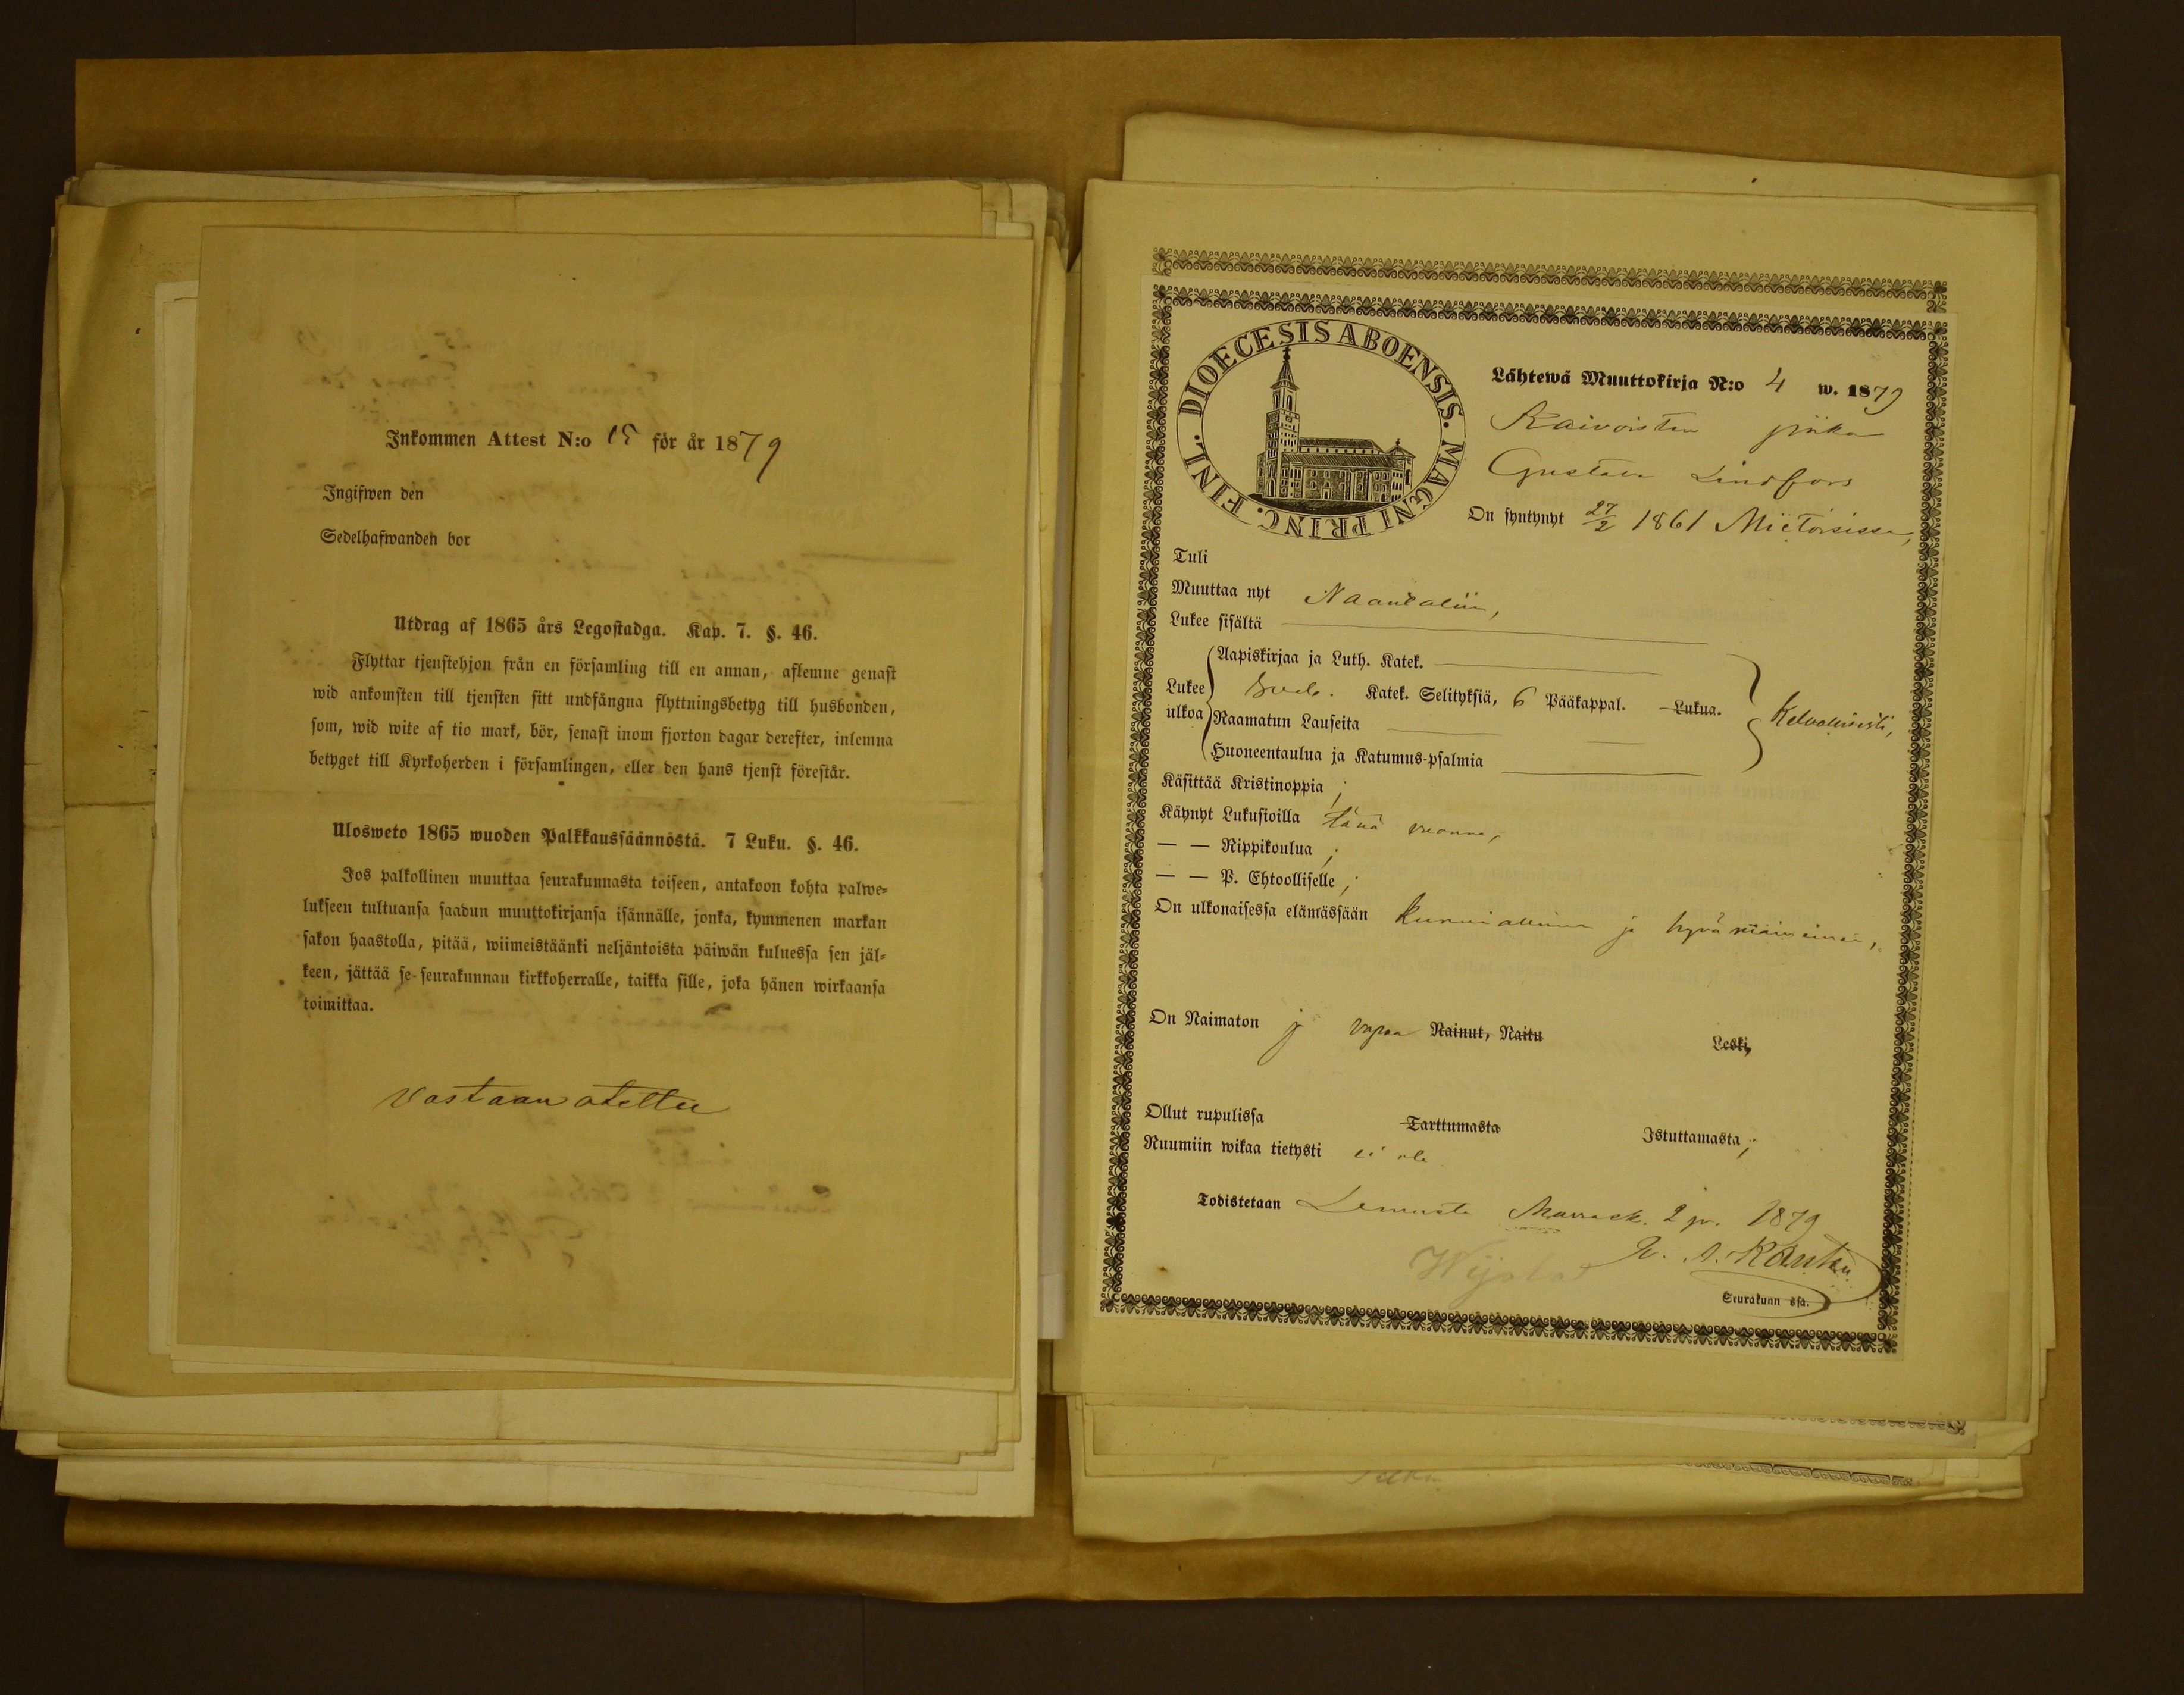 Inkommen Attest N:o 15 för år 1879
Ingifwen den
Sedelhafwanden bor
Utdrag af 1865 års Legostadga. Kap. 7. §. 46.
Flyttar tjenstehjon från en församling till en annan, aflemne genast
wid ankomsten till tjensten sitt undfångna flyttningsbetyg till husbonden,
som, wid wite af tio mark, bör, senast inom fjorton dagar derefter, inlemna
betyget till Kyrkoherden i församlingen, eller den hans tjenst förestår.
Ulosweto 1865 wuoden Palkkaussäännöstä. 7 Luku. §. 46.
Jos palkollinen muuttaa seurakunnasta toiseen, antakoon kohta palwe-
lukseen tultuansa saadun muuttokirjansa isännälle, jonka, kymmenen markan
sakon haastolla, pitää, wiimeistäänki neljäntoista päiwän kuluessa sen jäl-
keen, jättää se seurakunnan kirkkoherralle, taikka sille, joka hänen wirkaansa
toimittaa.
Vastaan otettu
DIOECESIS ABOENSIS. MAGNI PRINC. FINL.
Lähtewä Muuttokirja N:o 4 w. 1879
Kaivoisten
Gustav Lindfors
On syntynyt 27/2 1861 Mietoisissa,
Tuli
Muuttaa nyt Naantaliin,
Lukee sisältä
Aapiskirjaa ja Luth. Katek.
Lukee ulkoa
Sveb. Katek. Selityksiä, 6 Pääkappal. Lukua.
Raamatun Lauseita
Huoneentaulua ja Katumus-psalmia
Kelvollisesti,
Käsittää Kristinoppia ;
Käynyt Lukusioilla tänä vuonna,
— — Rippikoulua ;
— — P. Ehtoolliselle ;
On ulkonaisessa elämässään Kunniallinen ja hyvämaineinen,
On Naimaton ja vapaa Nainut, Naitu Leski,
Ollut rupulissa Tarttumasta Istuttamasta ;
Ruumiin wikaa tietysti ei ole
Todistetaan Lemusta Marrask. 2 p. 1879
Seurakunn ssa.